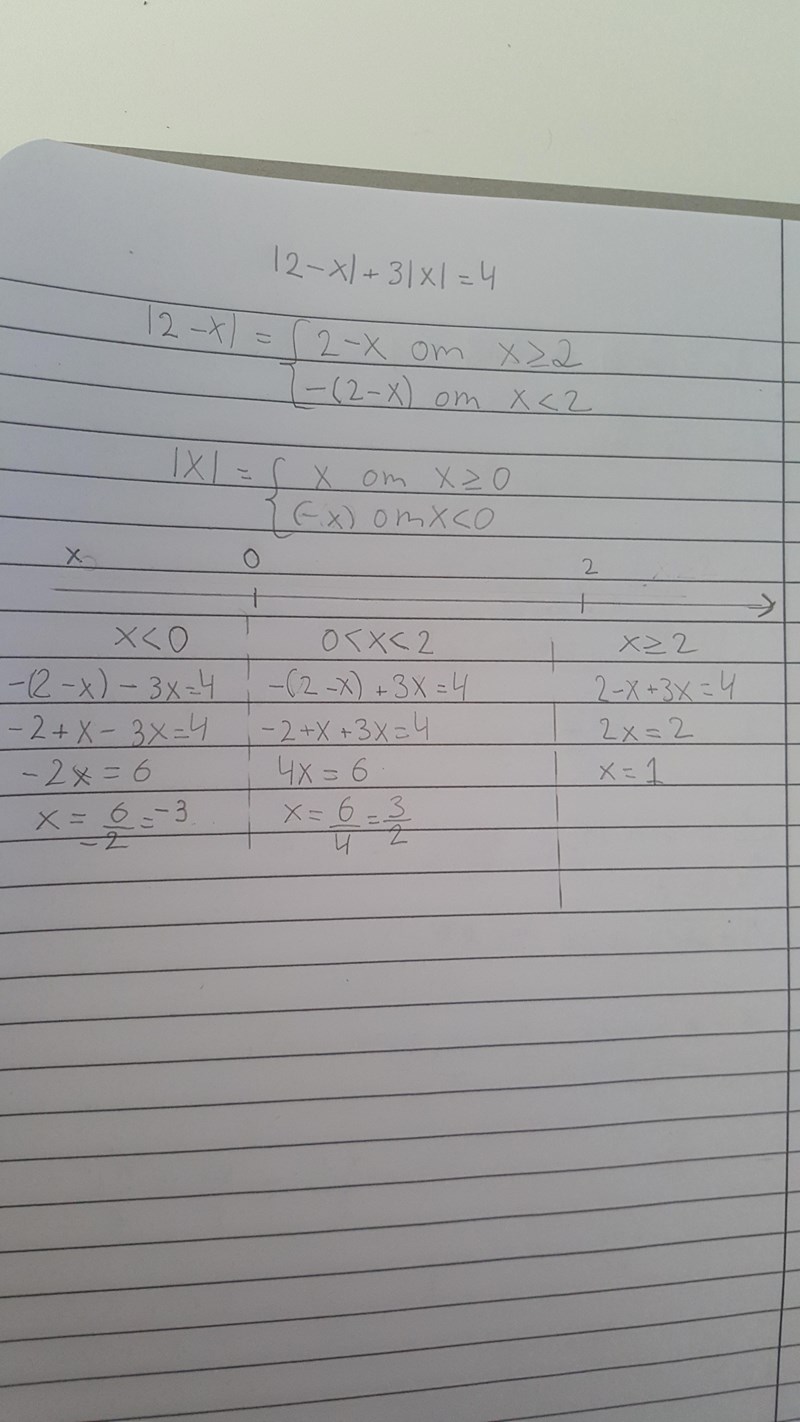 |2-x|+3|x|=4
|2-x| = { 2-x om x≥2
-(2-x) om x<2
|x| = { x om x≥0
(-x) om x<0
x 0 2
x<0 0<x<2 x≥2
-(2-x)-3x=4 -(2-x)+3x=4 2-x+3x=4
-2+x-3x=4 -2+x+3x=4 2x=2
-2x=6 4x=6 x=1
x=6/-2=-3 x=6/4=3/2